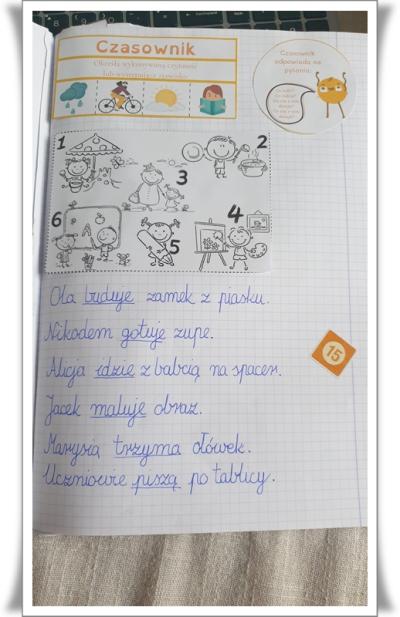 Czasownik
Określa wykonywaną czynność
lub występujące zjawisko
Czasownik
odpowiada na
pytania:
1
2
3
4
5
6
A
Ola buduje zamek z piasku.
Nikodem gotuje zupę.
Alicja idzie z babcią na spacer.
15
Jacek maluje obraz.
Marysia trzyma ołówek.
Uczniowie piszą po tablicy.